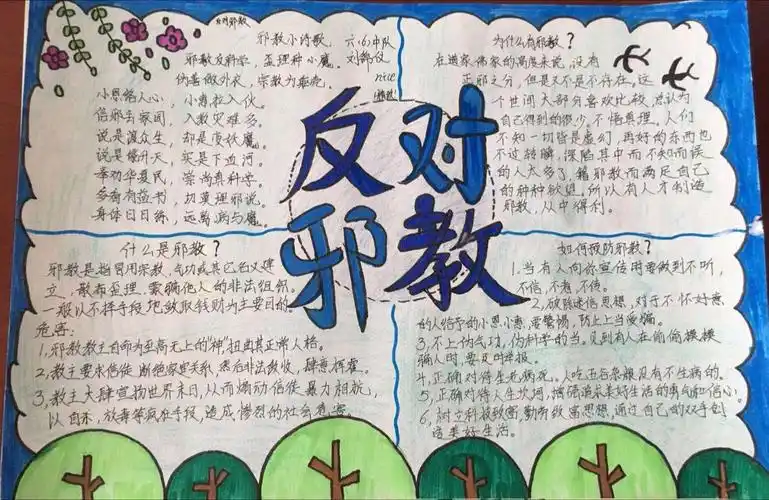 反对邪教
邪教小诗歌 六(6)中队
邪教反科学，歪理种小魔。刘静仪
伪善做外衣，宗教为乖疤。nice
小恩给人心，小惠拉入伙。
信邪去家闯，入教灾难多。
说是渡众生，却是废妖魔。
说是增升天，实是下血河。
奉劝华夏民，崇尚真科学。
多看有益书，切莫理邪说。
身体日日练，远离病与魔。
为什么有邪教？
在道家佛家的高度来说，没有
正邪之分，但是又不是不存在，这
个世间大部分喜欢比较，总认为
自己得到的很少，不悟真理。人们
不知一切皆是虚幻，再好的东西也
不过转瞬，深陷其中而不知而误
的人太多了，籍邪教而满足自己
的种种欲望。所以有人才制造
邪教，从中得利。
反对
邪教
什么是邪教？
邪教是指冒用宗教、气功或其它名义建
立、散布歪理、蒙骗他人的非法组织。
一般以不择手段地敛取钱财为主要目的
危害：
1、邪教教主自命为至高无上的“神”扭曲其正常人格。
2、教主要求信徒断绝家庭关系，然后非法敛收，肆意挥霍。
3、教主大肆宣扬世界末日，从而煽动信徒暴力相抗，
以自杀、放毒等疯狂手段，造成惨烈的社会危害。
如何预防邪教？
1.当有人向你宣传时要做到不听，
不信，不看，不传。
2、破除迷信思想，对于不怀好意
的人给予的小恩小惠，要警惕，防止上当受骗。
3、不上伪气功，伪科学的当。见到有人在偷偷摸摸
骗人时，要及时举报。
4、正确对待生老病死。人吃五谷杂粮没有不生病的。
5、正确对待人生坎坷，增强追求美好生活的勇气和信心。
6、树立科技致富，勤劳致富思想，通过自己的双手创
造美好生活。